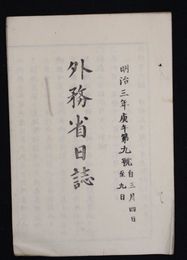 明治三年庚午第九號自三月四日
至九日
外務省日誌